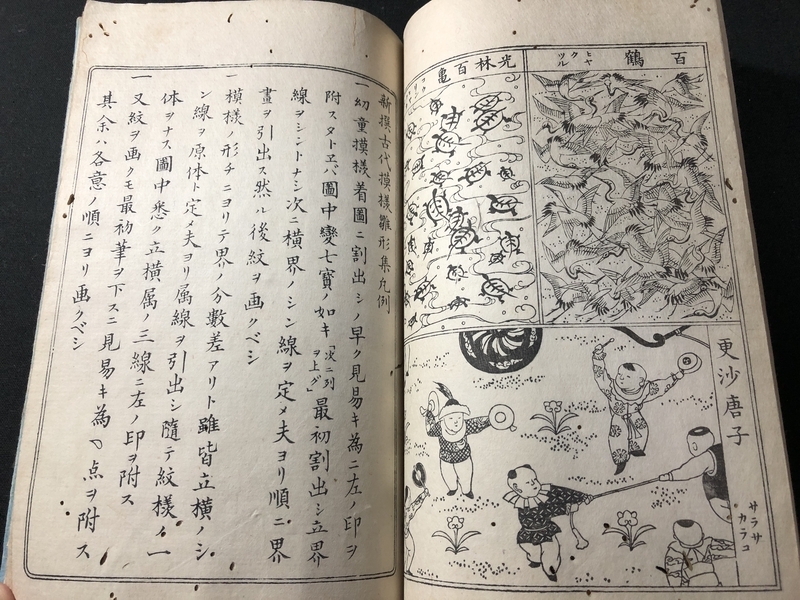 百鶴
ヒヤクツル
光林百亀
更沙唐子
サラサカラコ
新撰古代摸様雛形集凡例
一幼童摸様着圖ニ割出シノ早ク見易キ為ニ左ノ印ヲ
附スタトヱバ圖中變七寳ノ如キ「次ニ列ヲ上グ」最初割出シ立界
線ヲシントナシ次ニ横界ノシン線ヲ定メ夫ヨリ順ニ界
畫ヲ引出ス然ル後紋ヲ画クベシ
一模様ノ形チニヨリテ界ノ分數差アリト雖皆立横ノシ
ン線ヲ原体ト定メ夫ヨリ属線ヲ引出シ随テ紋様ノ一
体ヲナス圖中悉ク立横属ノ三線ニ左ノ印ヲ附ス
一又紋ヲ画クモ最初筆ヲ下スニ見易キ為丶点ヲ附ス
其余ハ各意ノ順ニヨリ画クベシ